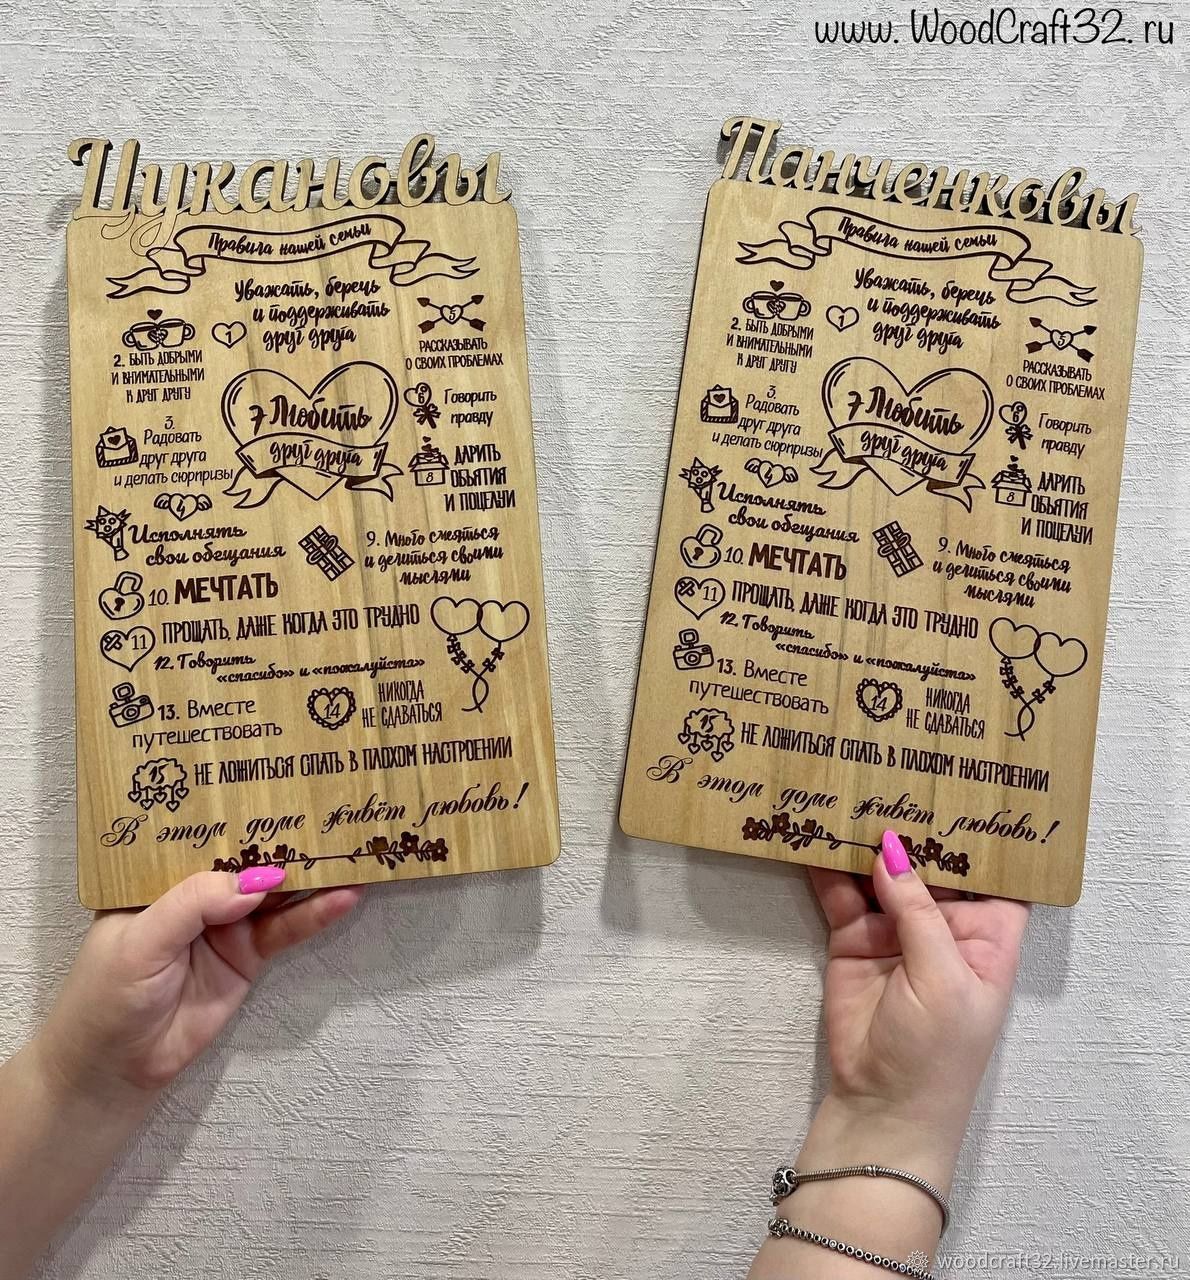 www. WoodCraft32. ru
Цукановы
Правила нашей семьи
Уважать, беречь
и поддерживать
друг друга
1
2. БЫТЬ ДОБРЫМИ
И ВНИМАТЕЛЬНЫМИ
К ДРУГ ДРУГУ
5
РАССКАЗЫВАТЬ
О СВОИХ ПРОБЛЕМАХ
3.
Радовать
друг друга
и делать сюрпризы
7 Любить
друг друга
6
Говорить
правду
4
Исполнять
свои обещания
8
ДАРИТЬ
ОБЪЯТИЯ
И ПОЦЕЛУИ
9. Много смеяться
и делиться своими
мыслями
10. МЕЧТАТЬ
11 ПРОЩАТЬ, ДАЖЕ КОГДА ЭТО ТРУДНО
12. Говорить
«спасибо» и «пожалуйста»
13. Вместе
путешествовать
14
НИКОГДА
НЕ СДАВАТЬСЯ
15 НЕ ЛОЖИТЬСЯ СПАТЬ В ПЛОХОМ НАСТРОЕНИИ
В этом доме живёт любовь!
Панченковы
Правила нашей семьи
Уважать, беречь
и поддерживать
друг друга
1
2. БЫТЬ ДОБРЫМИ
И ВНИМАТЕЛЬНЫМИ
К ДРУГ ДРУГУ
5
РАССКАЗЫВАТЬ
О СВОИХ ПРОБЛЕМАХ
3.
Радовать
друг друга
и делать сюрпризы
7 Любить
друг друга
6
Говорить
правду
4
Исполнять
свои обещания
8
ДАРИТЬ
ОБЪЯТИЯ
И ПОЦЕЛУИ
9. Много смеяться
и делиться своими
мыслями
10. МЕЧТАТЬ
11 ПРОЩАТЬ, ДАЖЕ КОГДА ЭТО ТРУДНО
12. Говорить
«спасибо» и «пожалуйста»
13. Вместе
путешествовать
14
НИКОГДА
НЕ СДАВАТЬСЯ
15 НЕ ЛОЖИТЬСЯ СПАТЬ В ПЛОХОМ НАСТРОЕНИИ
В этом доме живёт любовь!
woodcraft32.livemaster.ru